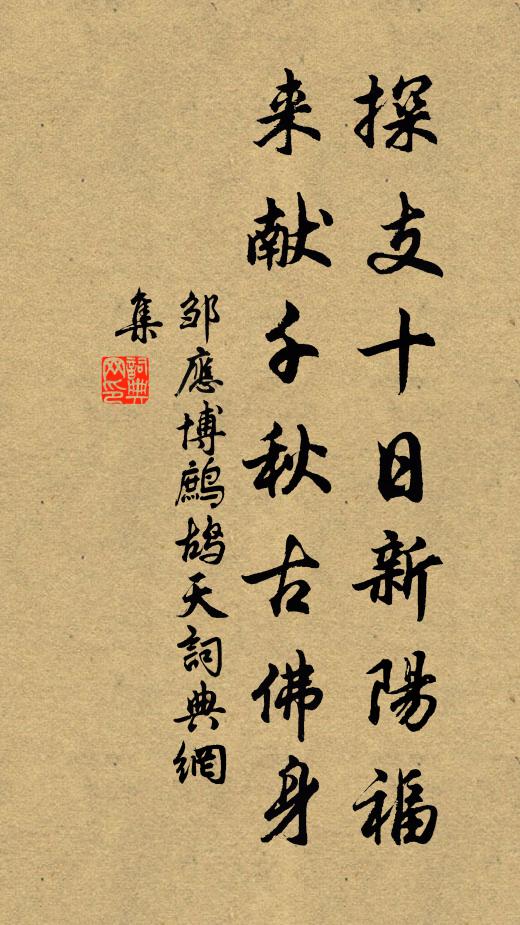 探支十日新陽福
来献千秋古佛身
邹應博鷓鴣天詞典網
集
詞典網印